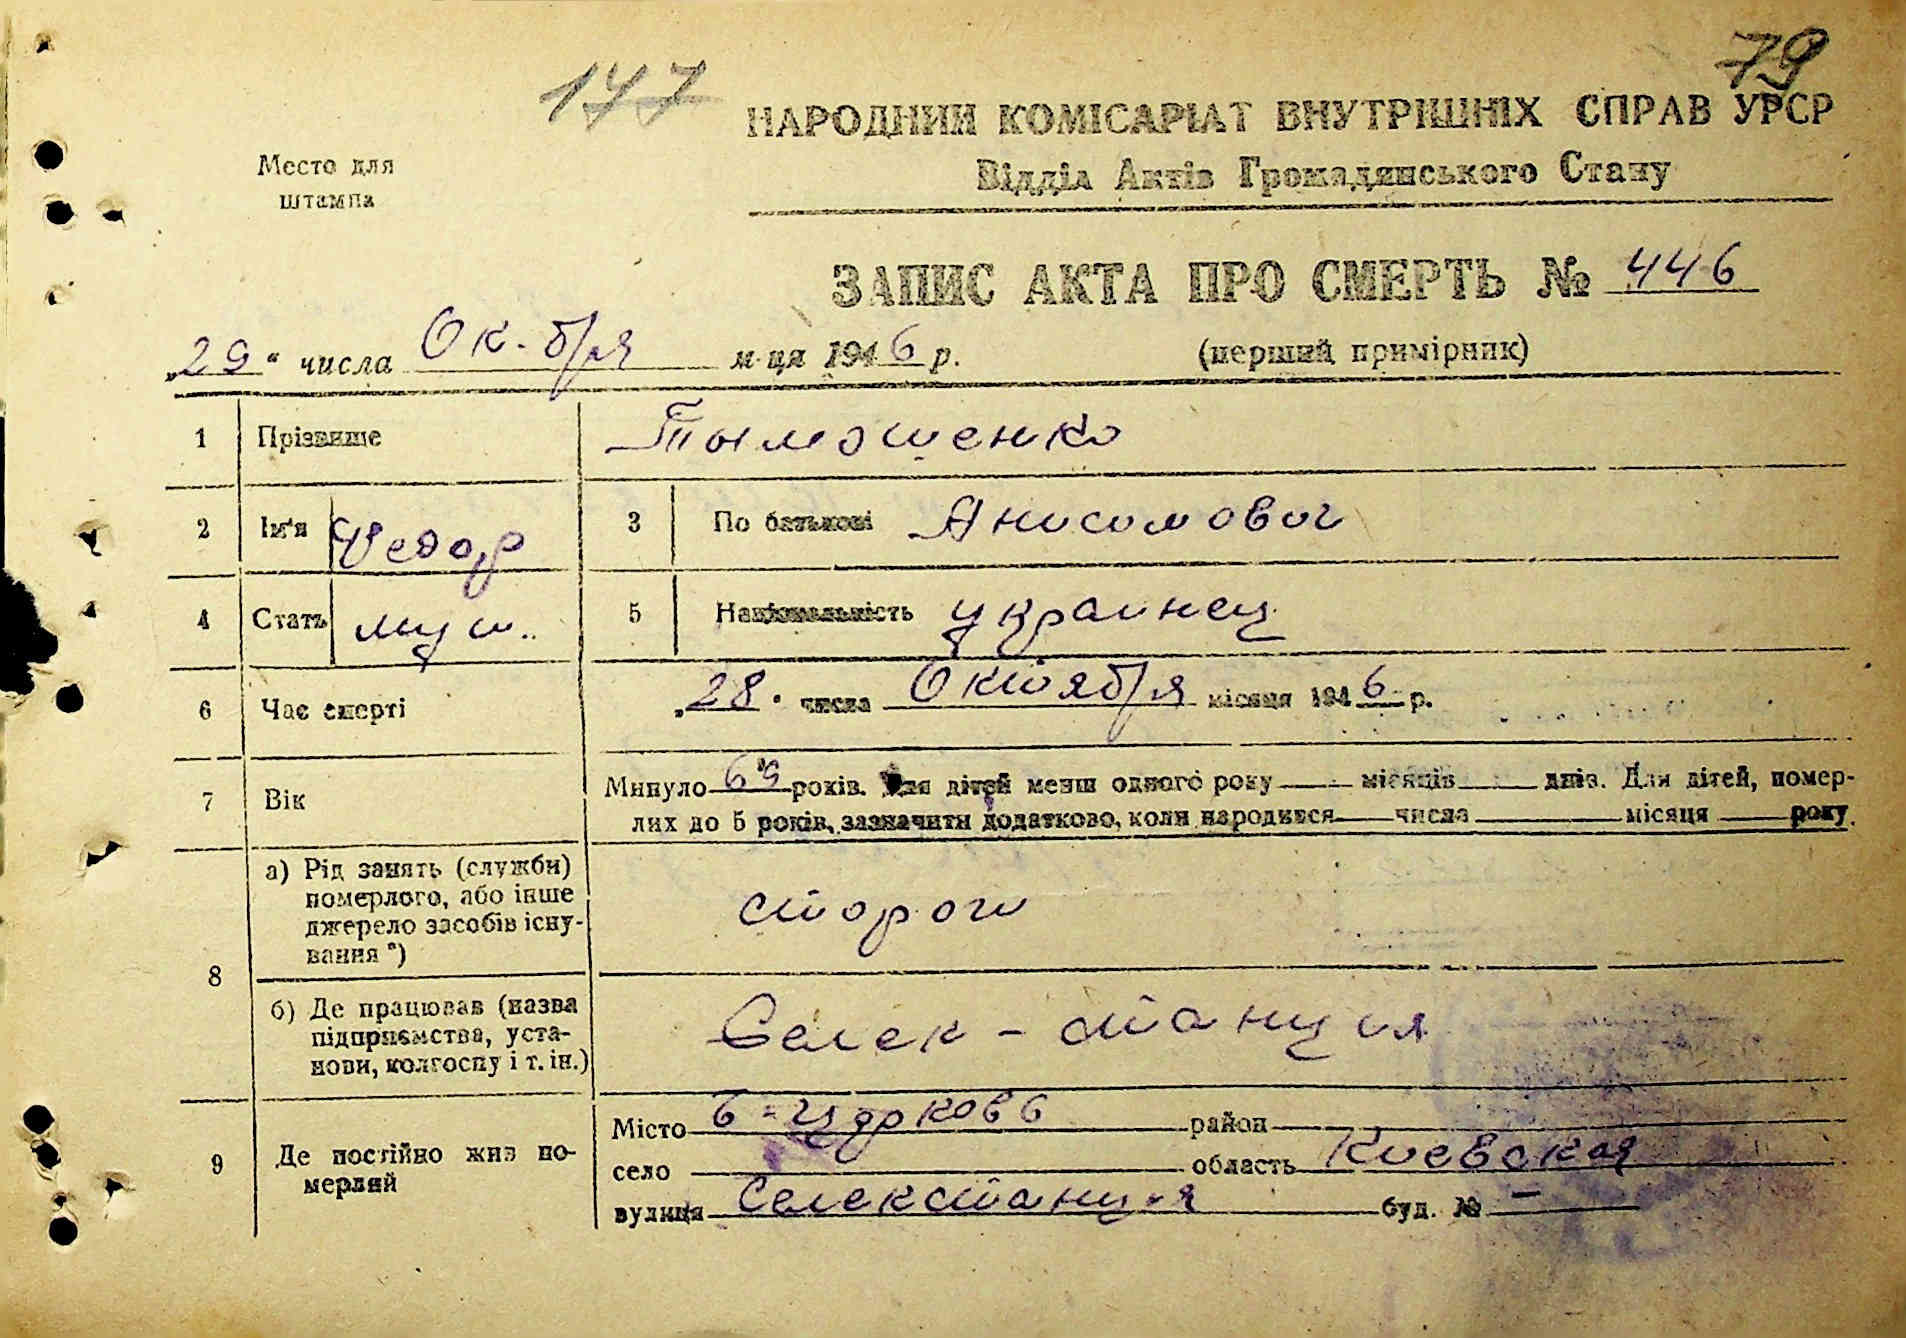 147
79
НАРОДНИЙ КОМІСАРІАТ ВНУТРІШНІХ СПРАВ УРСР
Место для штампа
Відділ Актів Громадянського Стану
ЗАПИС АКТА ПРО СМЕРТЬ № 446
„29“ числа Ок-б/ря м-ця 1946 р. (перший примірник)
1 Прізвище Тымошенко
2 Ім'я Федор 3 По батькові Анисимович
4 Стать муж. 5 Національність украинец
6 Час смерті „28“ числа Октяб/ря місяця 1946 р.
7 Вік Минуло 69 років. Для дітей менш одного року місяців днів. Для дітей, помер-
лих до 5 років, зазначити додатково, коли народився числа місяця року.
8 а) Рід занять (служби) померлого, або інше джерело засобів існу-вання *) сторож
б) Де працював (назва підприємства, уста-нови, колгоспу і т. ін.) Селек-станция
9 Де постійно жив по-мерлий
Місто б-церковь район
село область Киевская
вулиця Селекстанция буд. № –